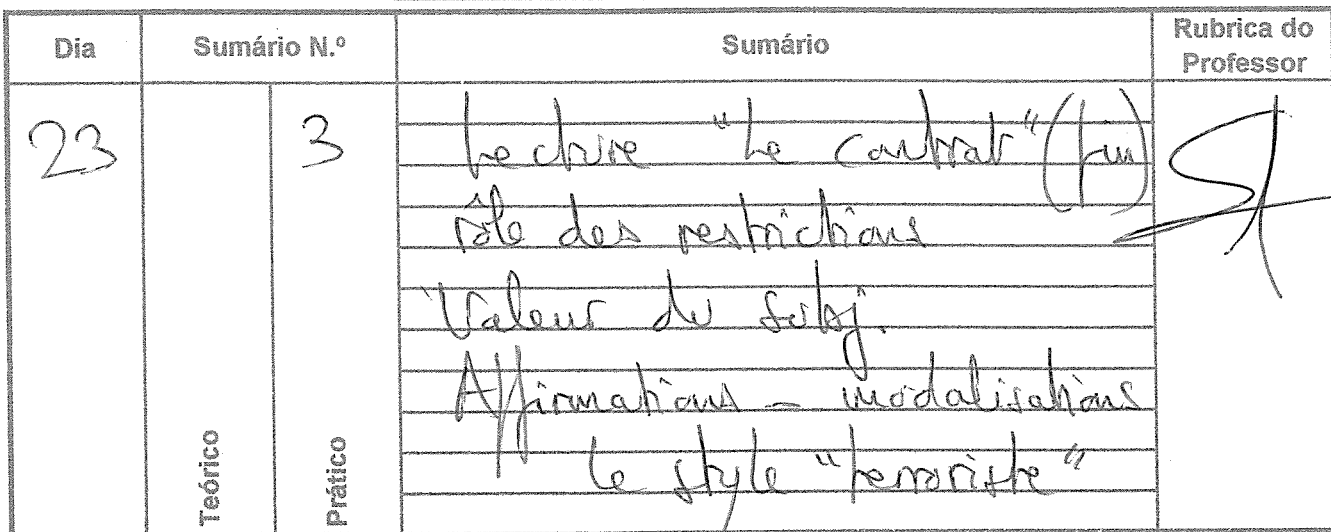 Dia Sumário N.º Sumário Rubrica do Professor
23 3 Lecture "Le Contrat" (fin)
rôle des restrictions
Valeur du subj.
Affirmations – modalisations
le style "terroriste"
Teórico Prático